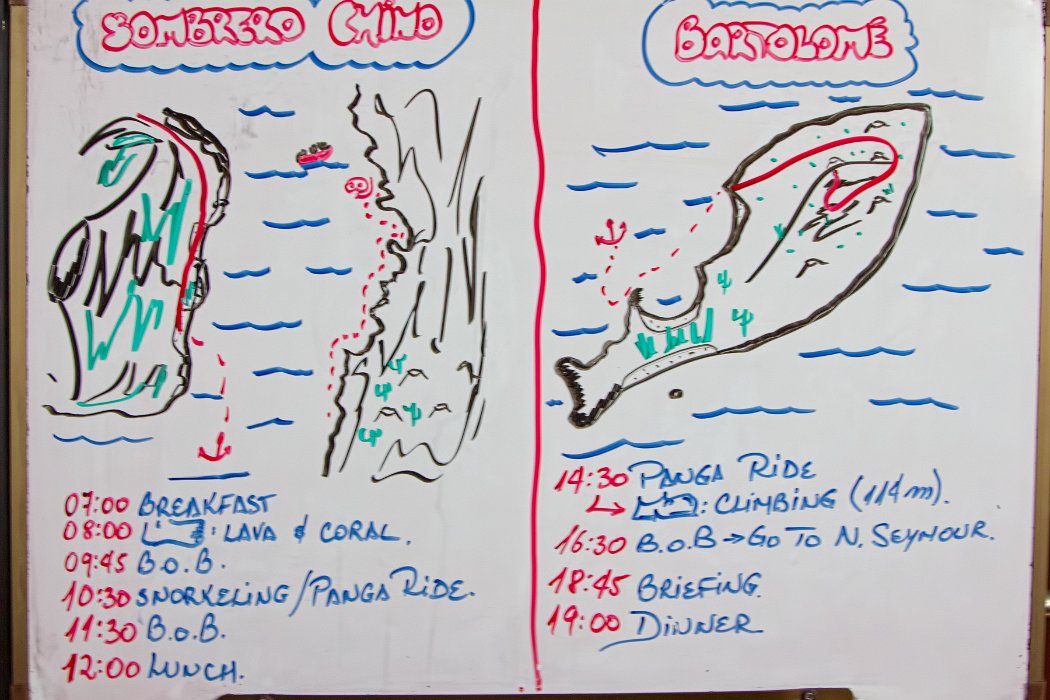 SOMBRERO CHINO
07:00 BREAKFAST
08:00 : LAVA & CORAL.
09:45 B.o.B.
10:30 SNORKELING/PANGA RIDE.
11:30 B.o.B.
12:00 LUNCH.
BARTOLOMÉ
14:30 PANGA RIDE
↳ : CLIMBING (114m).
16:30 B.o.B → GO TO N. SEYMOUR.
18:45 BRIEFING.
19:00 DINNER